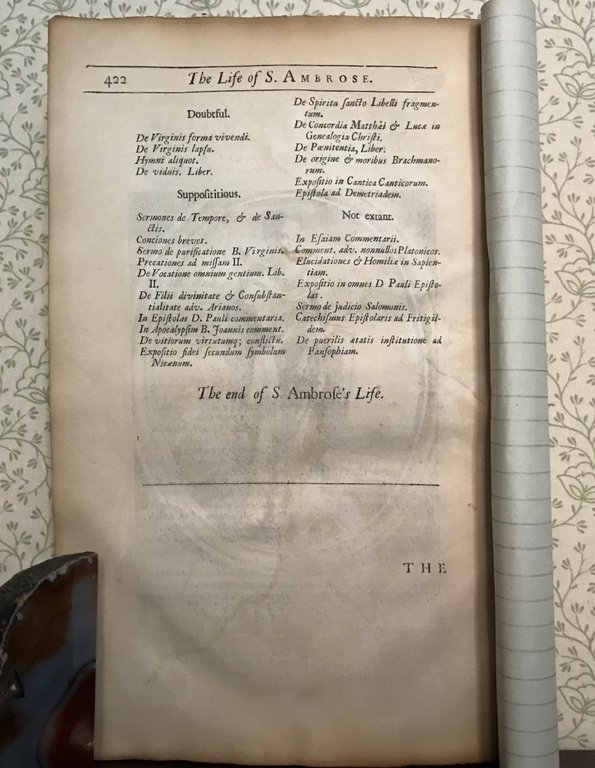 422 The Life of S. AMBROSE.
Doubtful.
De Virginis forma vivendi.
De Virginis lapſu.
Hymni aliquot.
De viduis. Liber.
Suppoſititious.
Sermones de Tempore, & de San-
ctis.
Conciones breves.
Sermo de purificatione B. Virginis.
Precationes ad miſſam II.
De Vocatione omnium gentium. Lib.
II.
De Filii divinitate & Conſubſtan-
tialitate adv. Arianos.
In Epiſtolas D. Pauli commentaria.
In Apocalypſim B. Joannis comment.
De vitiorum virtutumq; conflictu.
Expoſitio fidei ſecundum ſymbolum
Nicænum.
De Spiritu ſancto Libelli fragmen-
tum.
De Concordia Matthæi & Lucæ in
Genealogia Chriſti.
De Pœnitentia, Liber.
De origine & moribus Brachmano-
rum.
Expoſitio in Cantica Canticorum.
Epiſtola ad Demetriadem.
Not extant.
In Eſaiam Commentarii.
Comment. adv. nonnullos Platonicos.
Elucidationes & Homiliæ in Sapien-
tiam.
Expoſitio in omnes D Pauli Epiſto-
las.
Sermo de judicio Salomonis.
Catechiſmus Epiſtolaris ad Fritigil-
dem.
De puerilis ætatis inſtitutione ad
Panſophiam.
The end of S. Ambroſe's Life.
THE